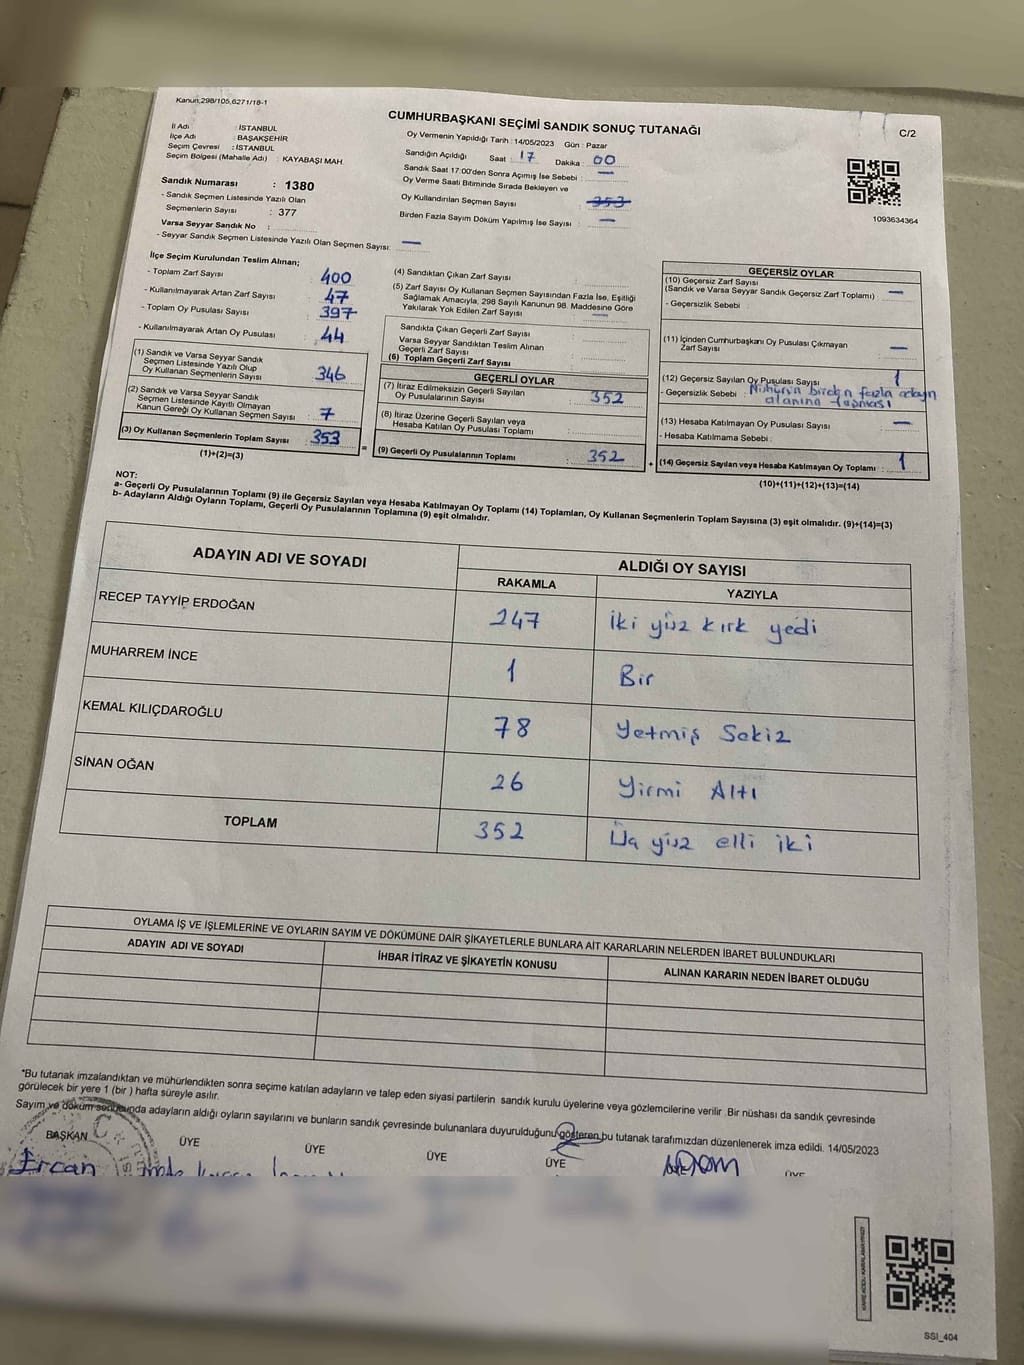 Kanun,298/105,6271/18-1
CUMHURBAŞKANI SEÇİMİ SANDIK SONUÇ TUTANAĞI
C/2
İl Adı : İSTANBUL
İlçe Adı : BAŞAKŞEHİR
Seçim Çevresi : İSTANBUL
Seçim Bölgesi (Mahalle Adı) : KAYABAŞI MAH.
Oy Vermenin Yapıldığı Tarih : 14/05/2023 Gün : Pazar
Sandığın Açıldığı Saat : 17 Dakika : 00
Sandık Saat 17:00'den Sonra Açımış İse Sebebi : —
Oy Verme Saati Bitiminde Sırada Bekleyen ve
Oy Kullandırılan Seçmen Sayısı : 353
Birden Fazla Sayım Döküm Yapılmış İse Sayısı : —
1093634364
Sandık Numarası : 1380
- Sandık Seçmen Listesinde Yazılı Olan
Seçmenlerin Sayısı : 377
Varsa Seyyar Sandık No :
- Seyyar Sandık Seçmen Listesinde Yazılı Olan Seçmen Sayısı: —
İlçe Seçim Kurulundan Teslim Alınan;
- Toplam Zarf Sayısı 400
- Kullanılmayarak Artan Zarf Sayısı : 47
- Toplam Oy Pusulası Sayısı : 397
- Kullanılmayarak Artan Oy Pusulası : 44
(1) Sandık ve Varsa Seyyar Sandık
Seçmen Listesinde Yazılı Olup
Oy Kullanan Seçmenlerin Sayısı : 346
(2) Sandık ve Varsa Seyyar Sandık
Seçmen Listesinde Kayıtlı Olmayan
Kanun Gereği Oy Kullanan Seçmen Sayısı : 7
(3) Oy Kullanan Seçmenlerin Toplam Sayısı : 353
(1)+(2)=(3)
(4) Sandıktan Çıkan Zarf Sayısı :
(5) Zarf Sayısı Oy Kullanan Seçmen Sayısından Fazla İse, Eşitliği
Sağlamak Amacıyla, 298 Sayılı Kanunun 98. Maddesine Göre
Yakılarak Yok Edilen Zarf Sayısı : —
Sandıkta Çıkan Geçerli Zarf Sayısı :
Varsa Seyyar Sandıktan Teslim Alınan
Geçerli Zarf Sayısı :
(6) Toplam Geçerli Zarf Sayısı :
GEÇERLİ OYLAR
(7) İtiraz Edilmeksizin Geçerli Sayılan
Oy Pusulalarının Sayısı : 352
(8) İtiraz Üzerine Geçerli Sayılan veya
Hesaba Katılan Oy Pusulası Toplamı :
(9) Geçerli Oy Pusulalarının Toplamı : 352
GEÇERSİZ OYLAR
(10) Geçersiz Zarf Sayısı
(Sandık ve Varsa Seyyar Sandık Geçersiz Zarf Toplamı) : —
- Geçersizlik Sebebi :
(11) İçinden Cumhurbaşkanı Oy Pusulası Çıkmayan
Zarf Sayısı : —
(12) Geçersiz Sayılan Oy Pusulası Sayısı : 1
- Geçersizlik Sebebi : Mührün birden fazla adayın
alanına taşması
(13) Hesaba Katılmayan Oy Pusulası Sayısı : —
- Hesaba Katılmama Sebebi :
(14) Geçersiz Sayılan veya Hesaba Katılmayan Oy Toplamı : 1
(10)+(11)+(12)+(13)=(14)
NOT:
a- Geçerli Oy Pusulalarının Toplamı (9) ile Geçersiz Sayılan veya Hesaba Katılmayan Oy Toplamı (14) Toplamları, Oy Kullanan Seçmenlerin Toplam Sayısına (3) eşit olmalıdır. (9)+(14)=(3)
b- Adayların Aldığı Oyların Toplamı, Geçerli Oy Pusulalarının Toplamına (9) eşit olmalıdır.
ADAYIN ADI VE SOYADI
ALDIĞI OY SAYISI
RAKAMLA YAZIYLA
RECEP TAYYİP ERDOĞAN 247 İki yüz kırk yedi
MUHARREM İNCE 1 Bir
KEMAL KILIÇDAROĞLU 78 Yetmiş Sekiz
SİNAN OĞAN 26 Yirmi Altı
TOPLAM 352 Üç yüz elli iki
OYLAMA İŞ VE İŞLEMLERİNE VE OYLARIN SAYIM VE DÖKÜMÜNE DAİR ŞİKAYETLERLE BUNLARA AİT KARARLARIN NELERDEN İBARET BULUNDUKLARI
ADAYIN ADI VE SOYADI İHBAR İTİRAZ VE ŞİKAYETİN KONUSU ALINAN KARARIN NEDEN İBARET OLDUĞU
*Bu tutanak imzalandıktan ve mühürlendikten sonra seçime katılan adayların ve talep eden siyasi partilerin sandık kurulu üyelerine veya gözlemcilerine verilir. Bir nüshası da sandık çevresinde
görülecek bir yere 1 (bir ) hafta süreyle asılır.
Sayım ve döküm sonucunda adayların aldığı oyların sayılarını ve bunların sandık çevresinde bulunanlara duyurulduğunu gösteren bu tutanak tarafımızdan düzenlenerek imza edildi. 14/05/2023
BAŞKAN ÜYE ÜYE ÜYE ÜYE ÜYE ÜYE
Ercan
SSI_404